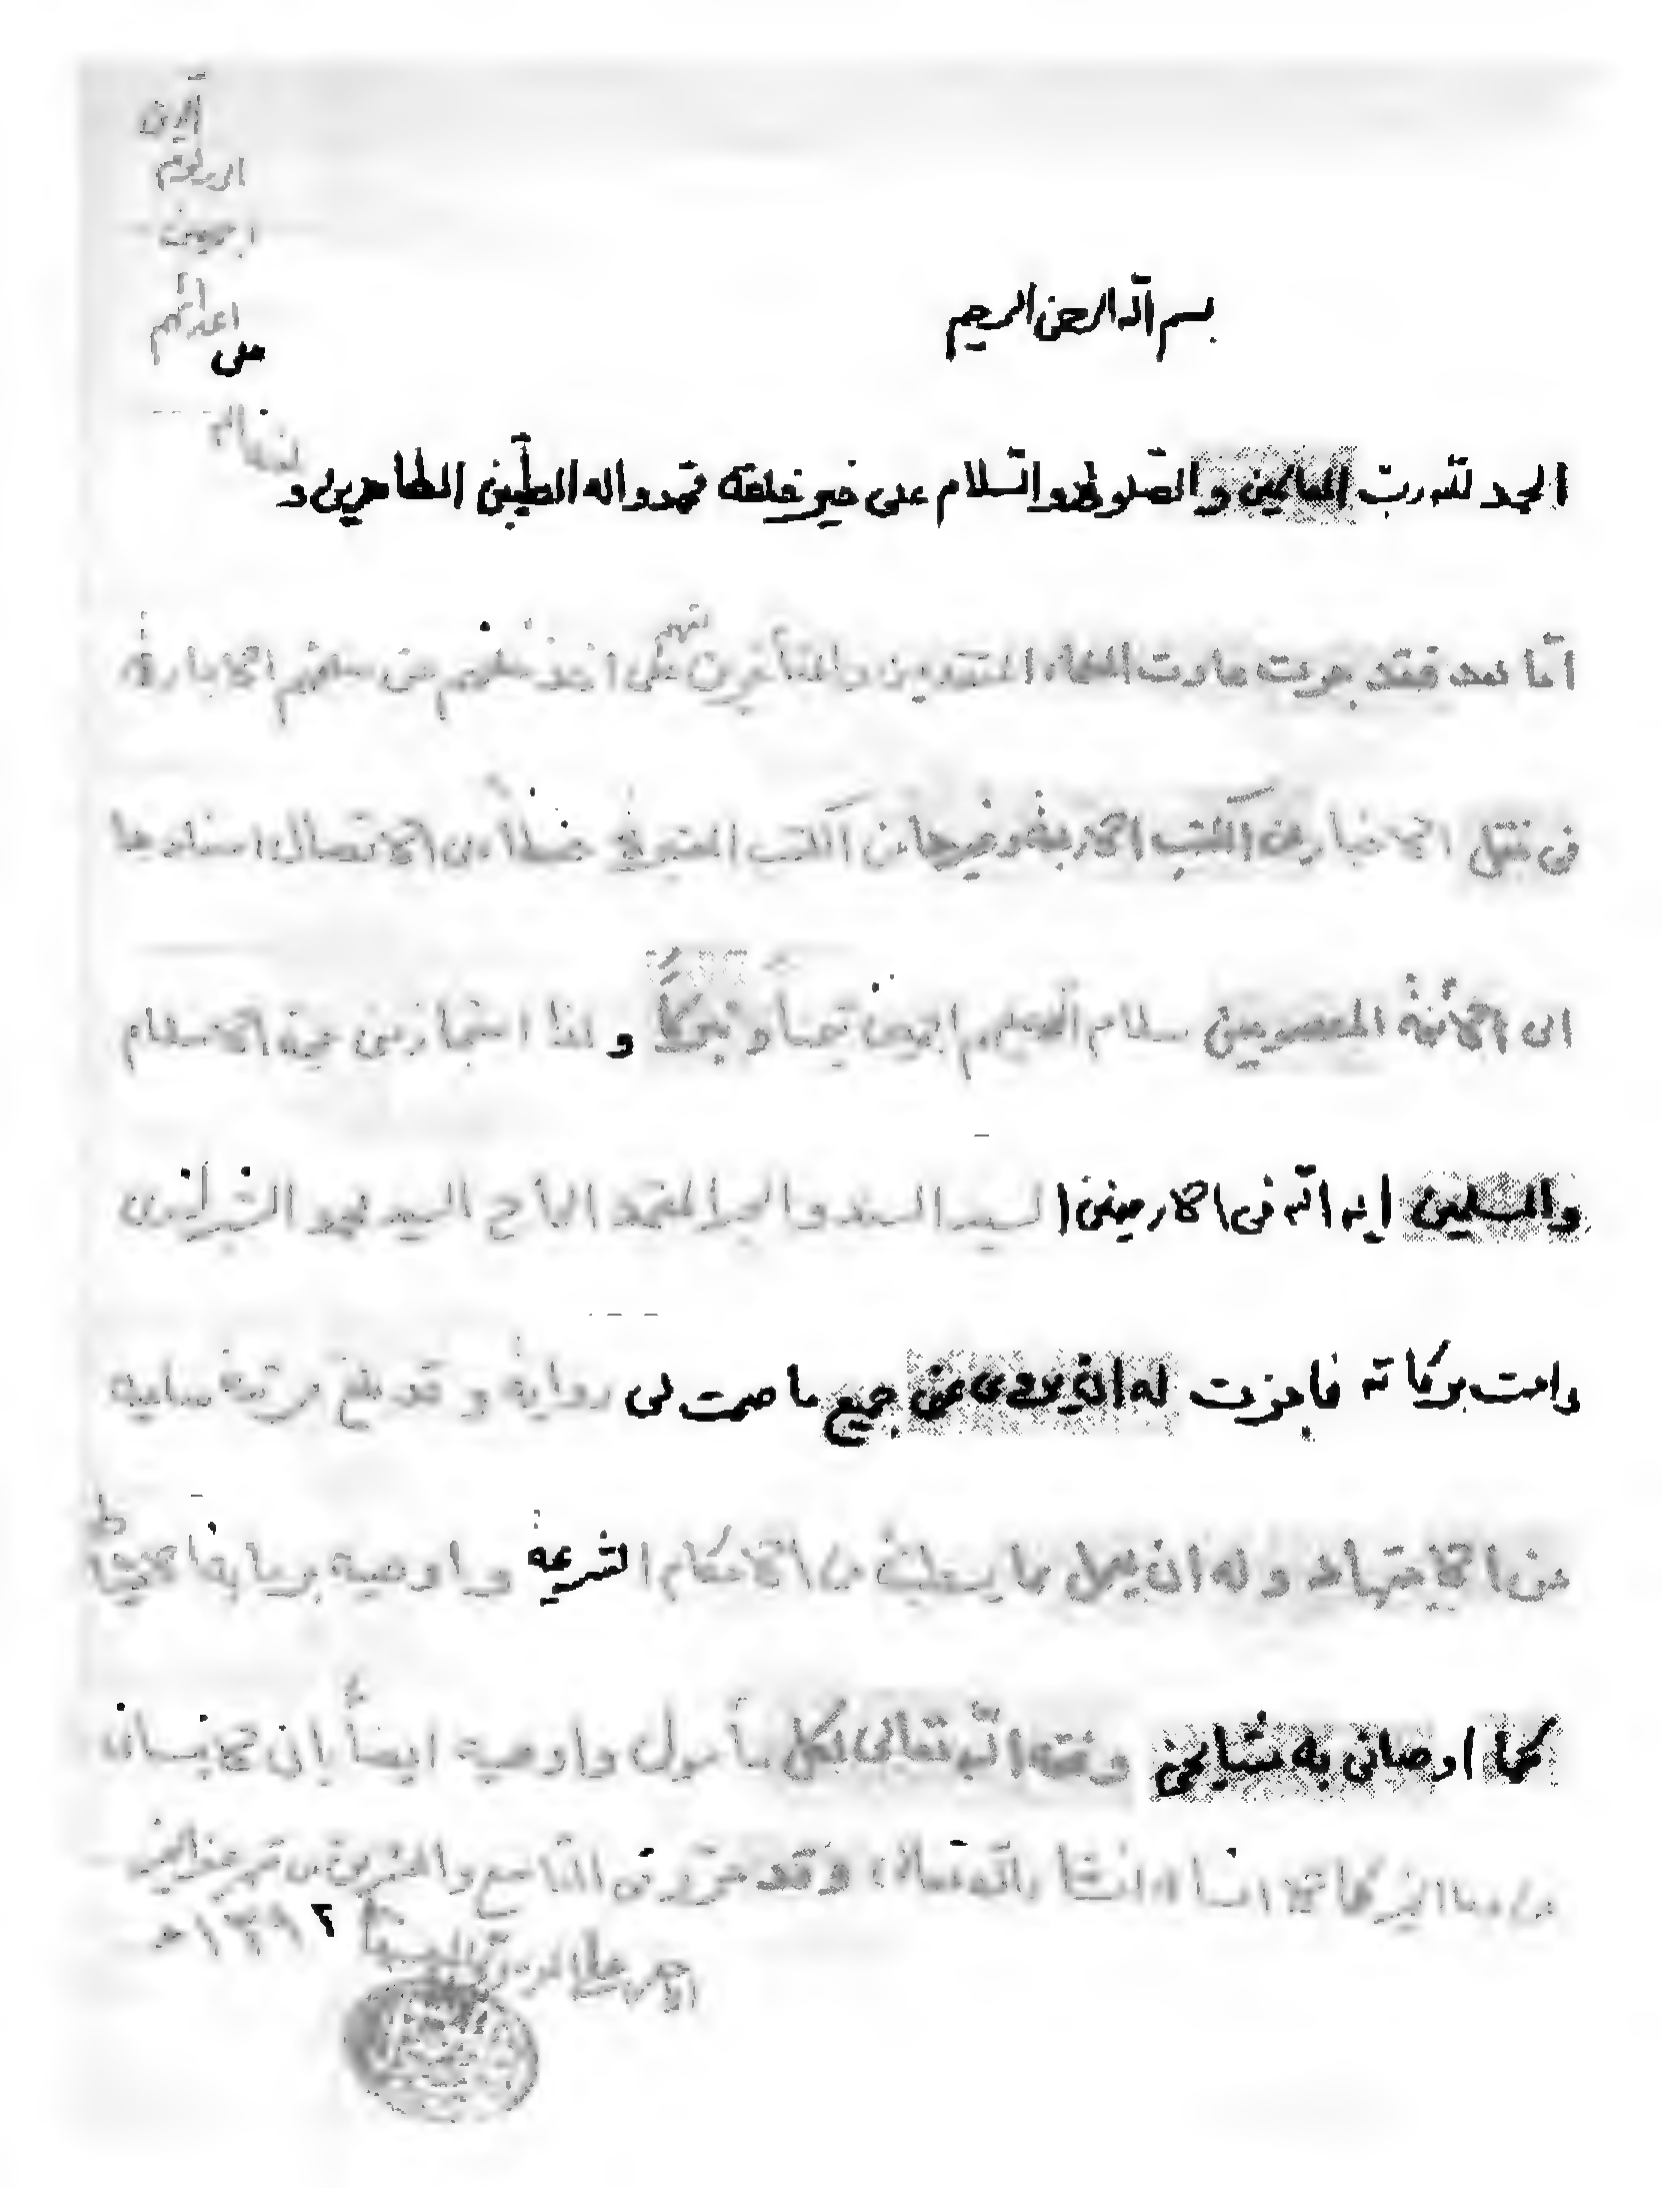 بسم الله الرحمن الرحيم
الحمد لله رب العالمين والصلوة والسلام على خير خلقه محمد واله الطيبين الطاهرين و
لعنة الله
على
اعدائهم
اجمعين
الى يوم
الدين
اما بعد فقد جرت عادت العلماء المتقدمين والمتأخرين منهم على اخذ خلفهم عن سلفهم الاجازة
فى نقل الاخبار من الكتب الاربعة وغيرها من الكتب المعتبرة حفظاً على الاتصال اسنادها
الى الأئمة المعصومين سلام الله عليهم اجمعين تيمناً و تبركاً و لذا استجاز منى حجة الاسلام
والمسلمين اية الله فى الارضين السيد السند والحبر المعتمد الحاج السيد محمد الشيرازى
دامت بركاته فاجزت له ان يروى عنى جميع ما صحت لى رواية و قد بلغ مرتبة سامية
من الاجتهاد و له ان يعمل بما يستنبط من الاحكام الشرعية و اوصيه بملازمة الاحتياط
كما اوصانى به مشايخى وفقه الله تعالى لكل مأمول و اوصيه ايضاً بان لا ينسانى
من دعاء الخير كما لا انساه انشاء الله تعالى و قد حرر فى التاسع والعشرين من شهر
١٣٩٢ هـ
الاحقر على